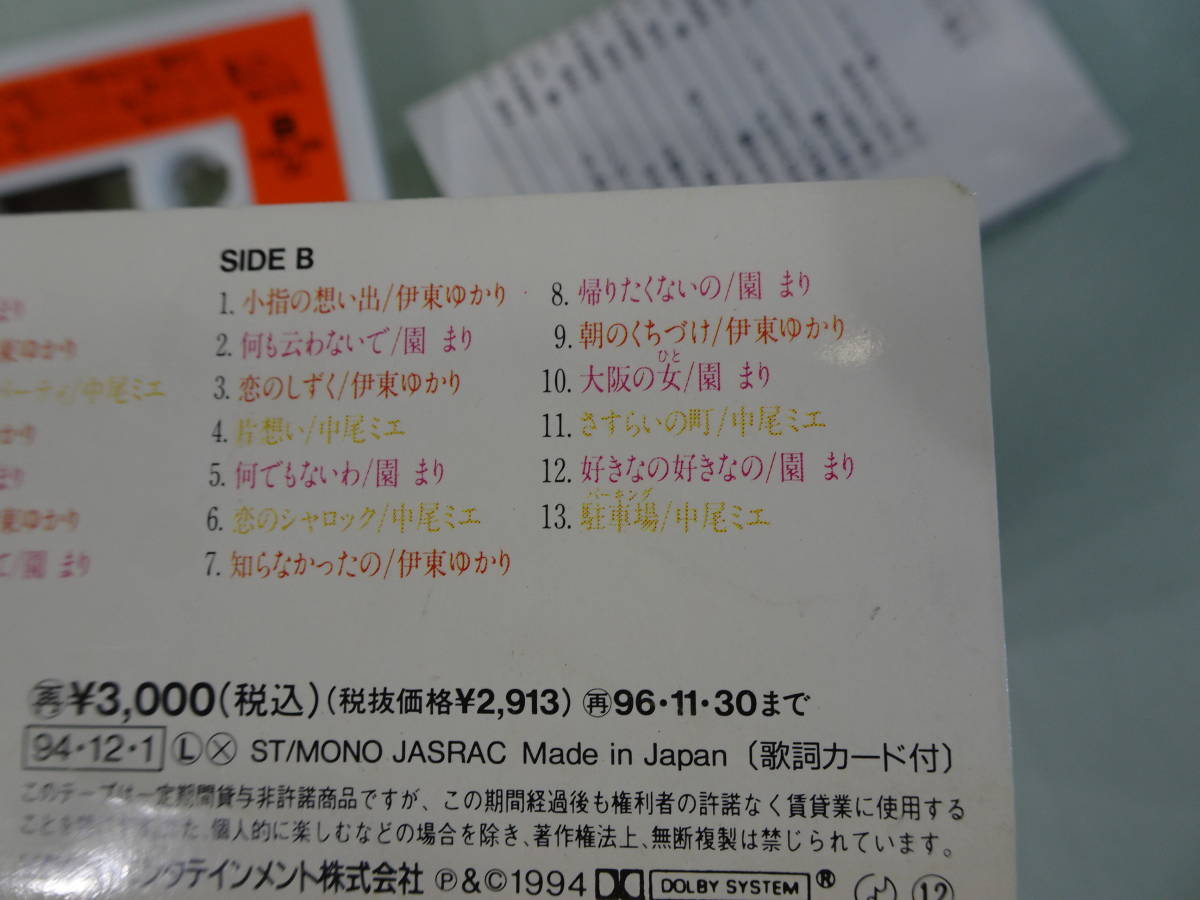 SIDE B
1. 小指の想い出/伊東ゆかり
2. 何も云わないで/園 まり
3. 恋のしずく/伊東ゆかり
4. 片想い/中尾ミエ
5. 何でもないわ/園 まり
6. 恋のシャロック/中尾ミエ
7. 知らなかったの/伊東ゆかり
8. 帰りたくないの/園 まり
9. 朝のくちづけ/伊東ゆかり
ひと
10. 大阪の女/園 まり
11. さすらいの町/中尾ミエ
12. 好きなの好きなの/園 まり
パーキング
13. 駐車場/中尾ミエ
まり
東ゆかり
パーティ/中尾ミエ
かり
まり
東ゆかり
て/園 まり
再¥3,000(税込)(税抜価格¥2,913) 再96・11・30まで
94・12・1 Ⓛ Ⓧ ST/MONO JASRAC Made in Japan 〔歌詞カード付〕
このテープは一定期間貸与非許諾商品ですが、この期間経過後も権利者の許諾なく賃貸業に使用する
ことを また、個人的に楽しむなどの場合を除き、著作権法上、無断複製は禁じられています。
ンタテインメント株式会社 Ⓟ&©1994 DOLBY SYSTEM ® ⑫